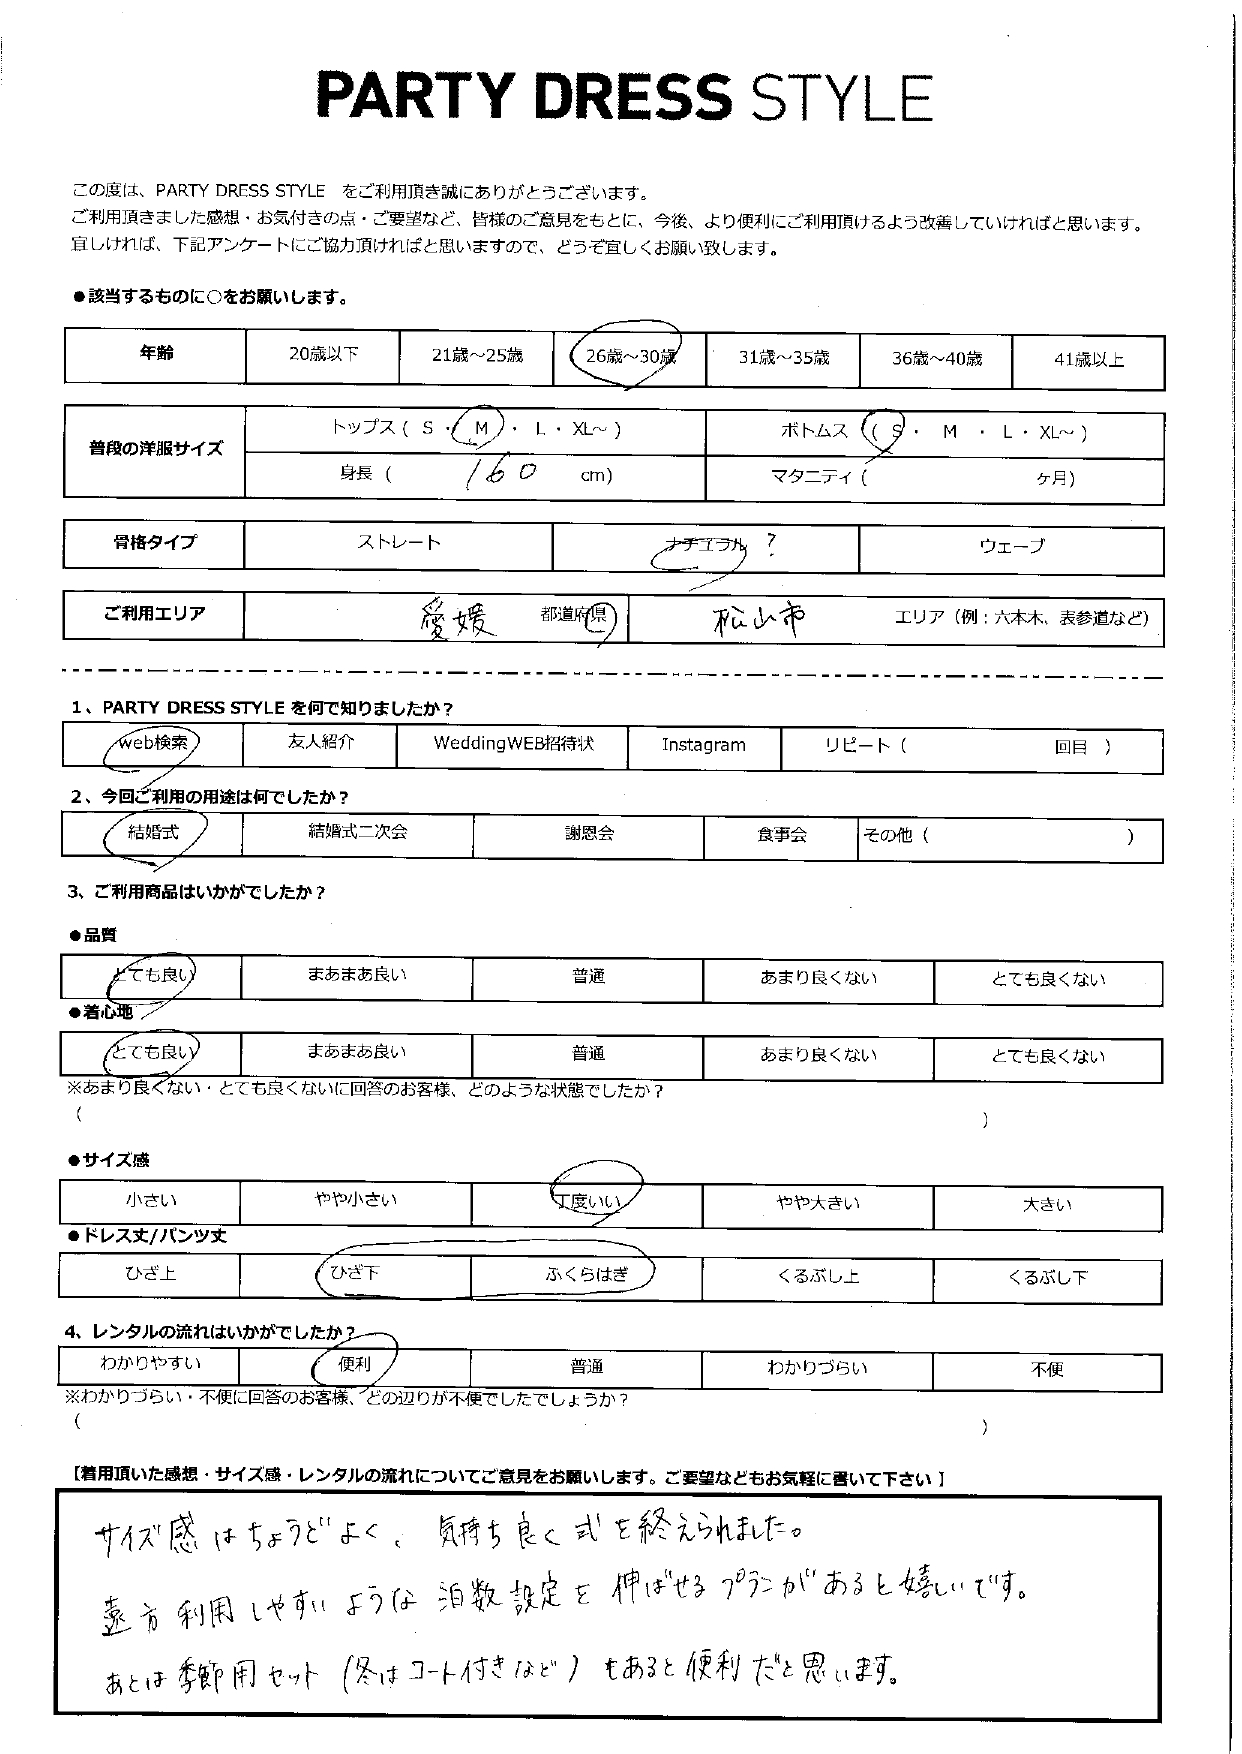 PARTY DRESS STYLE
この度は、PARTY DRESS STYLE をご利用頂き誠にありがとうございます。
ご利用頂きました感想・お気付きの点・ご要望など、皆様のご意見をもとに、今後、より便利にご利用頂けるよう改善していければと思います。
宜しければ、下記アンケートにご協力頂ければと思いますので、どうぞ宜しくお願い致します。
●該当するものに○をお願いします。
年齢 20歳以下 21歳～25歳 26歳～30歳 31歳～35歳 36歳～40歳 41歳以上
普段の洋服サイズ トップス ( S ・ M ・ L ・ XL～ ) ボトムス ( S ・ M ・ L ・ XL～ )
身長 ( 160 cm) マタニティ ( ヶ月)
骨格タイプ ストレート ナチュラル ? ウェーブ
ご利用エリア 愛媛 都道府県 松山市 エリア（例：六本木、表参道など）
1、PARTY DRESS STYLE を何で知りましたか？
web検索 友人紹介 WeddingWEB招待状 Instagram リピート ( 回目 )
2、今回ご利用の用途は何でしたか？
結婚式 結婚式二次会 謝恩会 食事会 その他 ( )
3、ご利用商品はいかがでしたか？
●品質
とても良い まあまあ良い 普通 あまり良くない とても良くない
●着心地
とても良い まあまあ良い 普通 あまり良くない とても良くない
※あまり良くない・とても良くないに回答のお客様、どのような状態でしたか？
( )
●サイズ感
小さい やや小さい 丁度いい やや大きい 大きい
●ドレス丈/パンツ丈
ひざ上 ひざ下 ふくらはぎ くるぶし上 くるぶし下
4、レンタルの流れはいかがでしたか？
わかりやすい 便利 普通 わかりづらい 不便
※わかりづらい・不便に回答のお客様、どの辺りが不便でしたでしょうか？
( )
【着用頂いた感想・サイズ感・レンタルの流れについてご意見をお願いします。ご要望などもお気軽に書いて下さい】
サイズ感はちょうどよく、気持ち良く式を終えられました。
遠方利用しやすいような泊数設定を伸ばせるプランがあると嬉しいです。
あとは季節用セット（冬はコート付きなど）もあると便利だと思います。